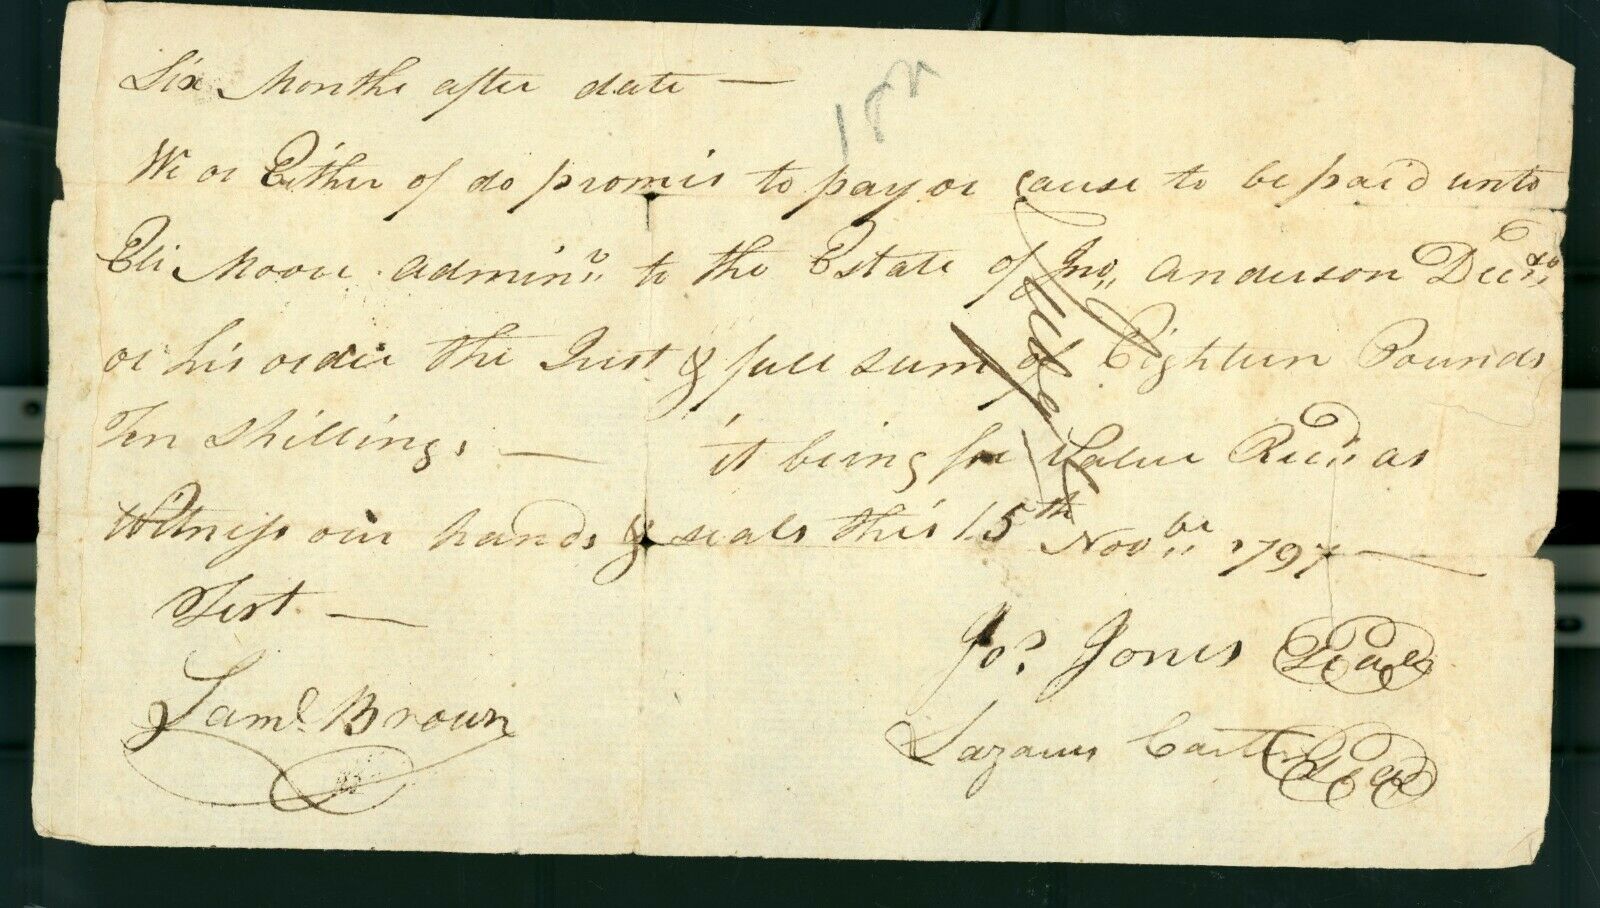 Six Months after date —
We or Either of do promis to pay or cause to be paid unto
Eli Moore Admin.r to the Estate of Jno,, Anderson Dec.d
or his order the Just & full sum of Eighteen Pounds
Ten Shillings — it being for Value Rec.d as
Witness our hands & seals this 15th Nov.br 1797 —
Test —
Jos. Jones Seal
Saml. Brown
Lazarus Carter Seal